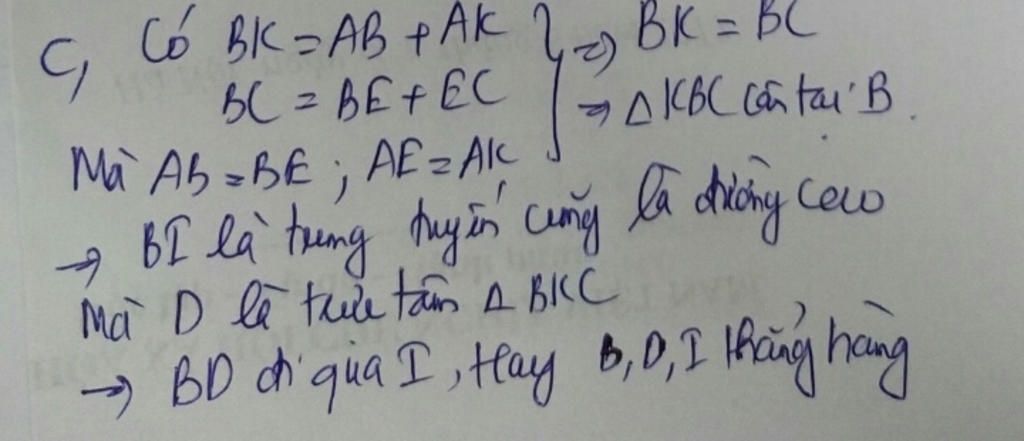 C, Có BK = AB + AK } => BK = BC
BC = BE + EC → ΔKBC cân tại B.
Mà AB = BE ; AE = AK
→ BI là trung tuyến cũng là đường cao
Mà D là trực tâm Δ BKC
→ BD đi qua I, Hay B, D, I thẳng hàng